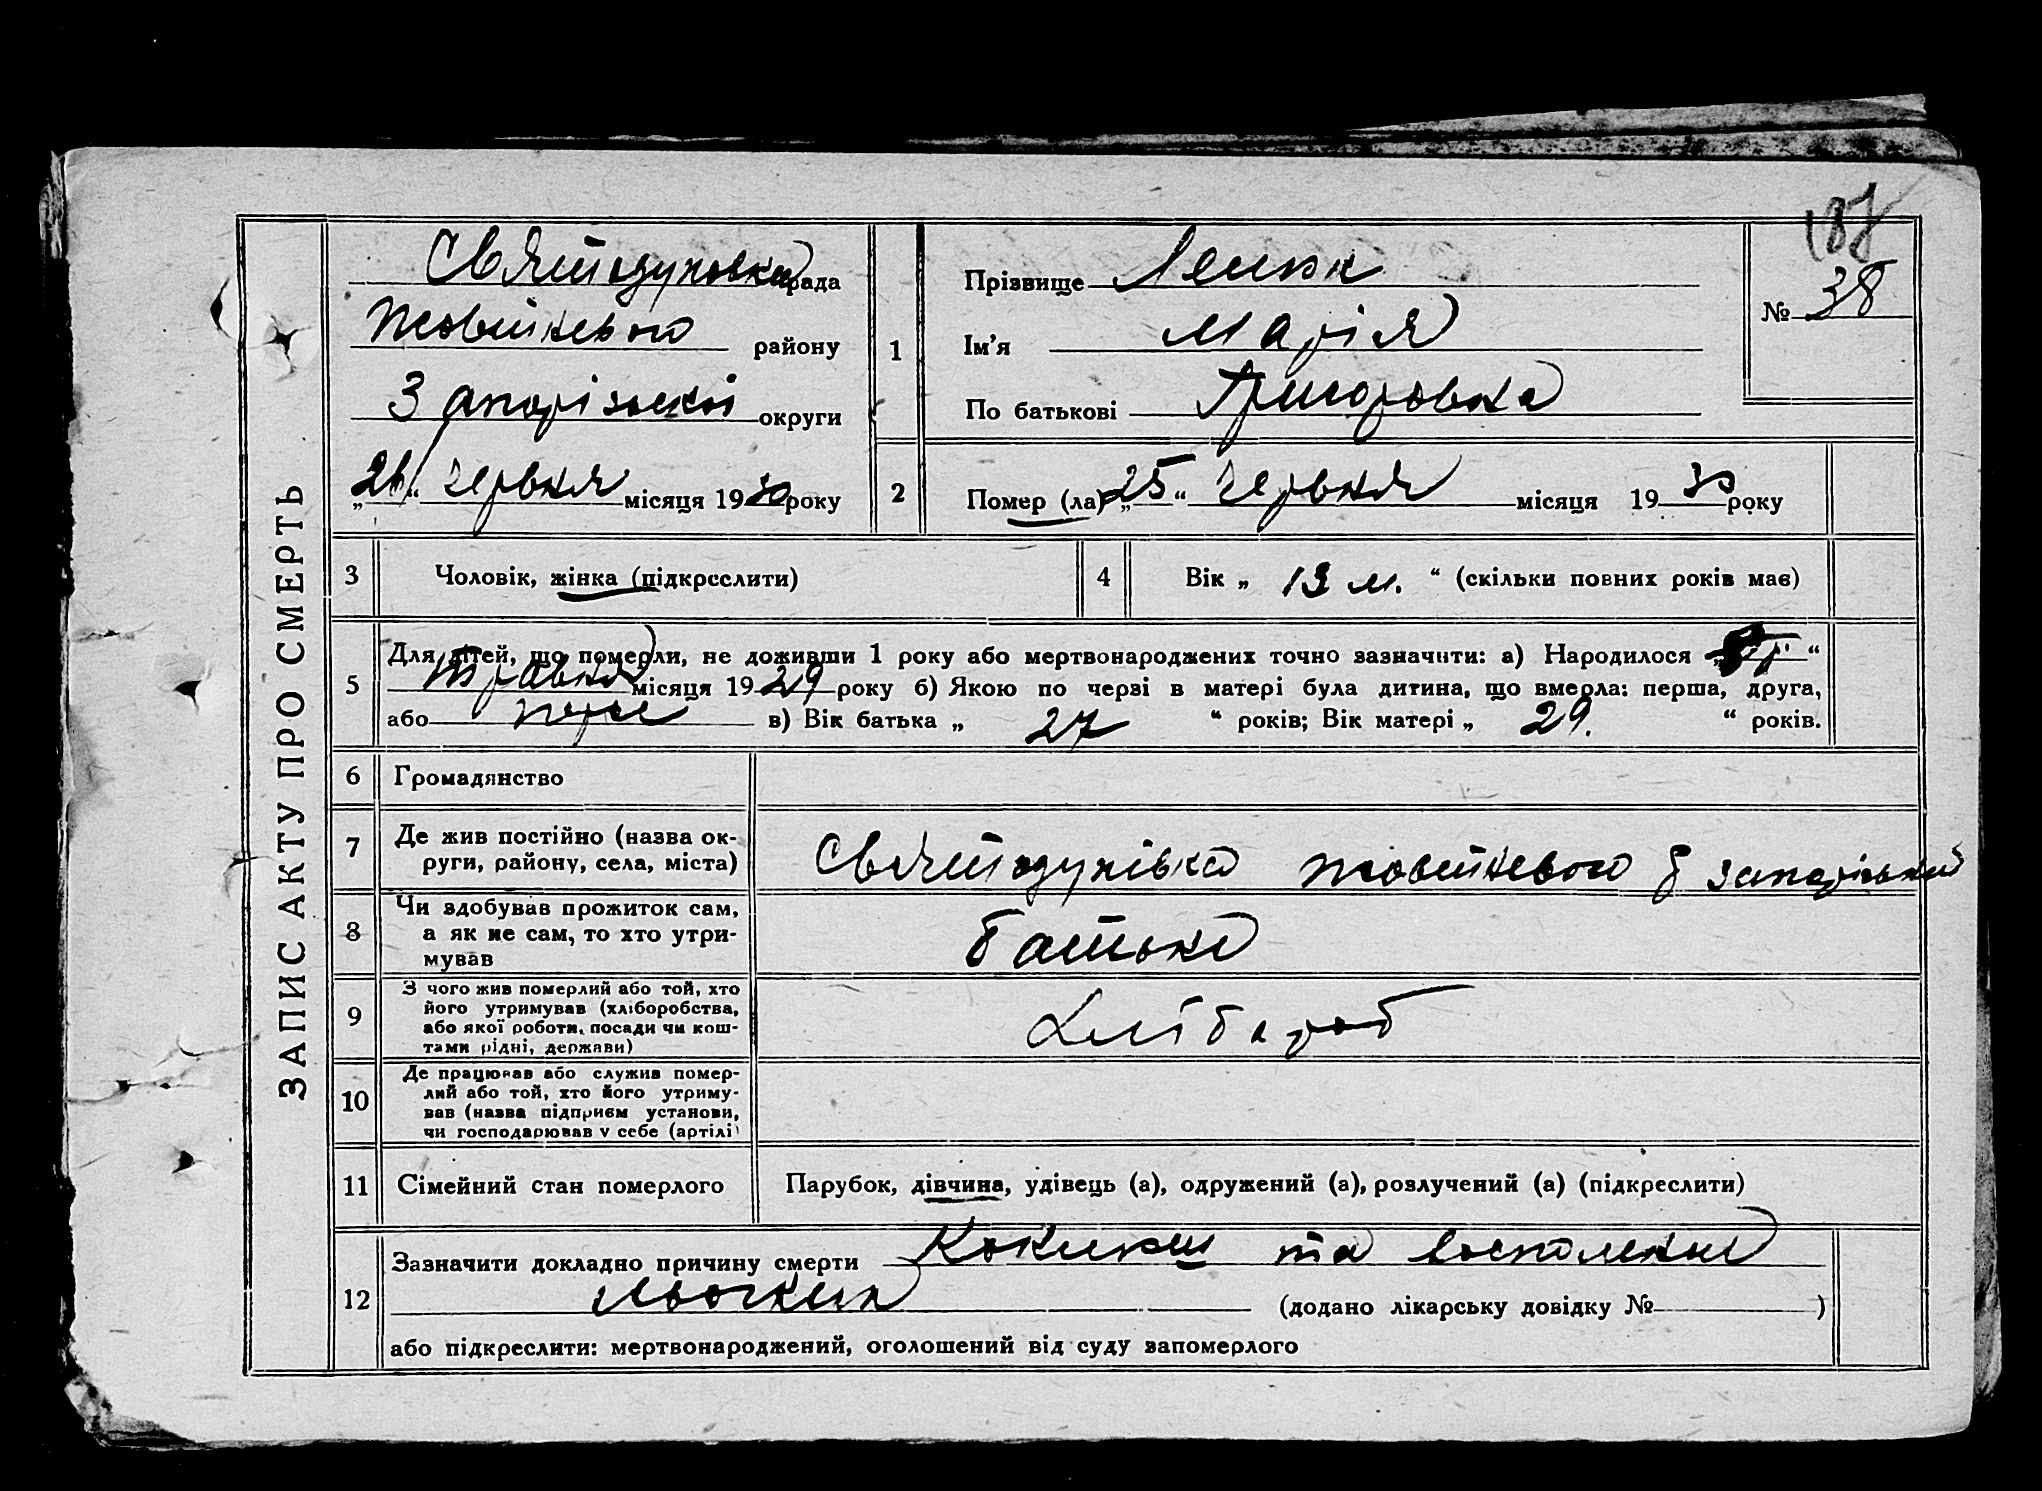 187
ЗАПИС АКТУ ПРО СМЕРТЬ
Святодуховка рада
Жовтневого району
Запорізької округи
„26“ червня місяця 1930 року
1
Прізвище
Ім'я Марія
По батькові Григоровна
№ 38
2
Помер (ла) „25“ червня місяця 1930 року
3
Чоловік, жінка (підкреслити)
4
Вік „ 13 м. “ (скільки повних років має)
5
Для дітей, що померли, не доживши 1 року або мертвонароджених точно зазначити: а) Народилося „ “
травня місяця 1929 року б) Якою по черзі в матері була дитина, що вмерла: перша, друга,
або в) Вік батька „ 27 “ років; Вік матері „ 29. “ років.
6
Громадянство
7
Де жив постійно (назва ок-
руги, району, села, міста)
Святодухівка Жовтневого р Запорізької
8
Чи здобував прожиток сам,
а як не сам, то хто утри-
мував
батько
9
З чого жив померлий або той, хто
його утримував (хліборобства,
або якої роботи, посади чи кош-
тами рідні, держави)
хлібароб
10
Де працював або служив помер-
лий або той, хто його утриму-
вав (назва підприєм установи,
чи господарював у себе (артілі)
11
Сімейний стан померлого
Парубок, дівчина, удівець (а), одружений (а), розлучений (а) (підкреслити)
12
Зазначити докладно причину смерти Коклюш та
(додано лікарську довідку № )
або підкреслити: мертвонароджений, оголошений від суду запомерлого